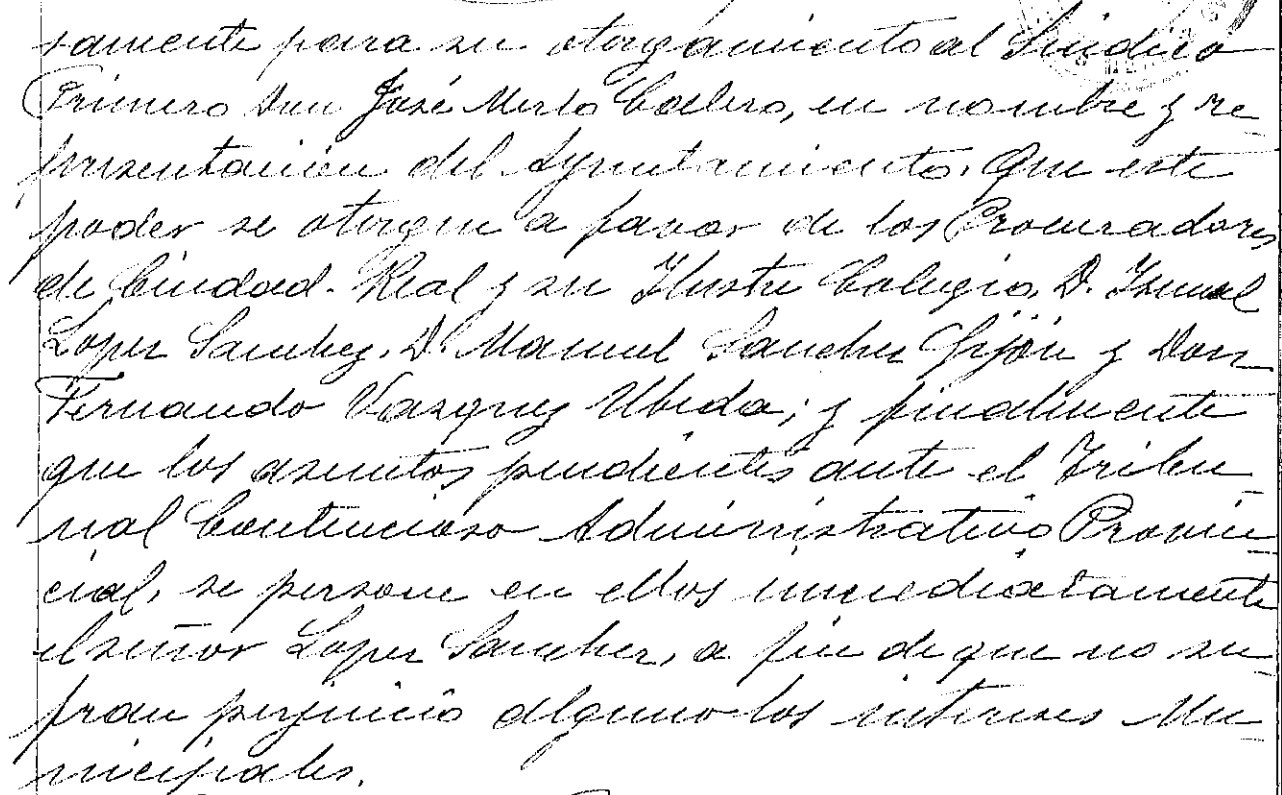 samente para su otorgamiento al Sindico
Primero Don José Merlo Calero, en nombre y re
presentación del Ayuntamiento. Que este
poder se otorgue a favor de los Procuradores
de Ciudad-Real y su Ilustre Colegio, D. Ismael
Lopez Sanchez, D. Manuel Sanchez Gijón y Don
Fernando Vazquez Ubeda; y finalmente
que los asuntos pendientes ante el Tribu
nal Contencioso Administrativo Provin
cial, se persone en ellos inmediatamente
el señor Lopez Sanchez, a fin de que no su
fran perjuicio alguno los intereses Mu
nicipales.